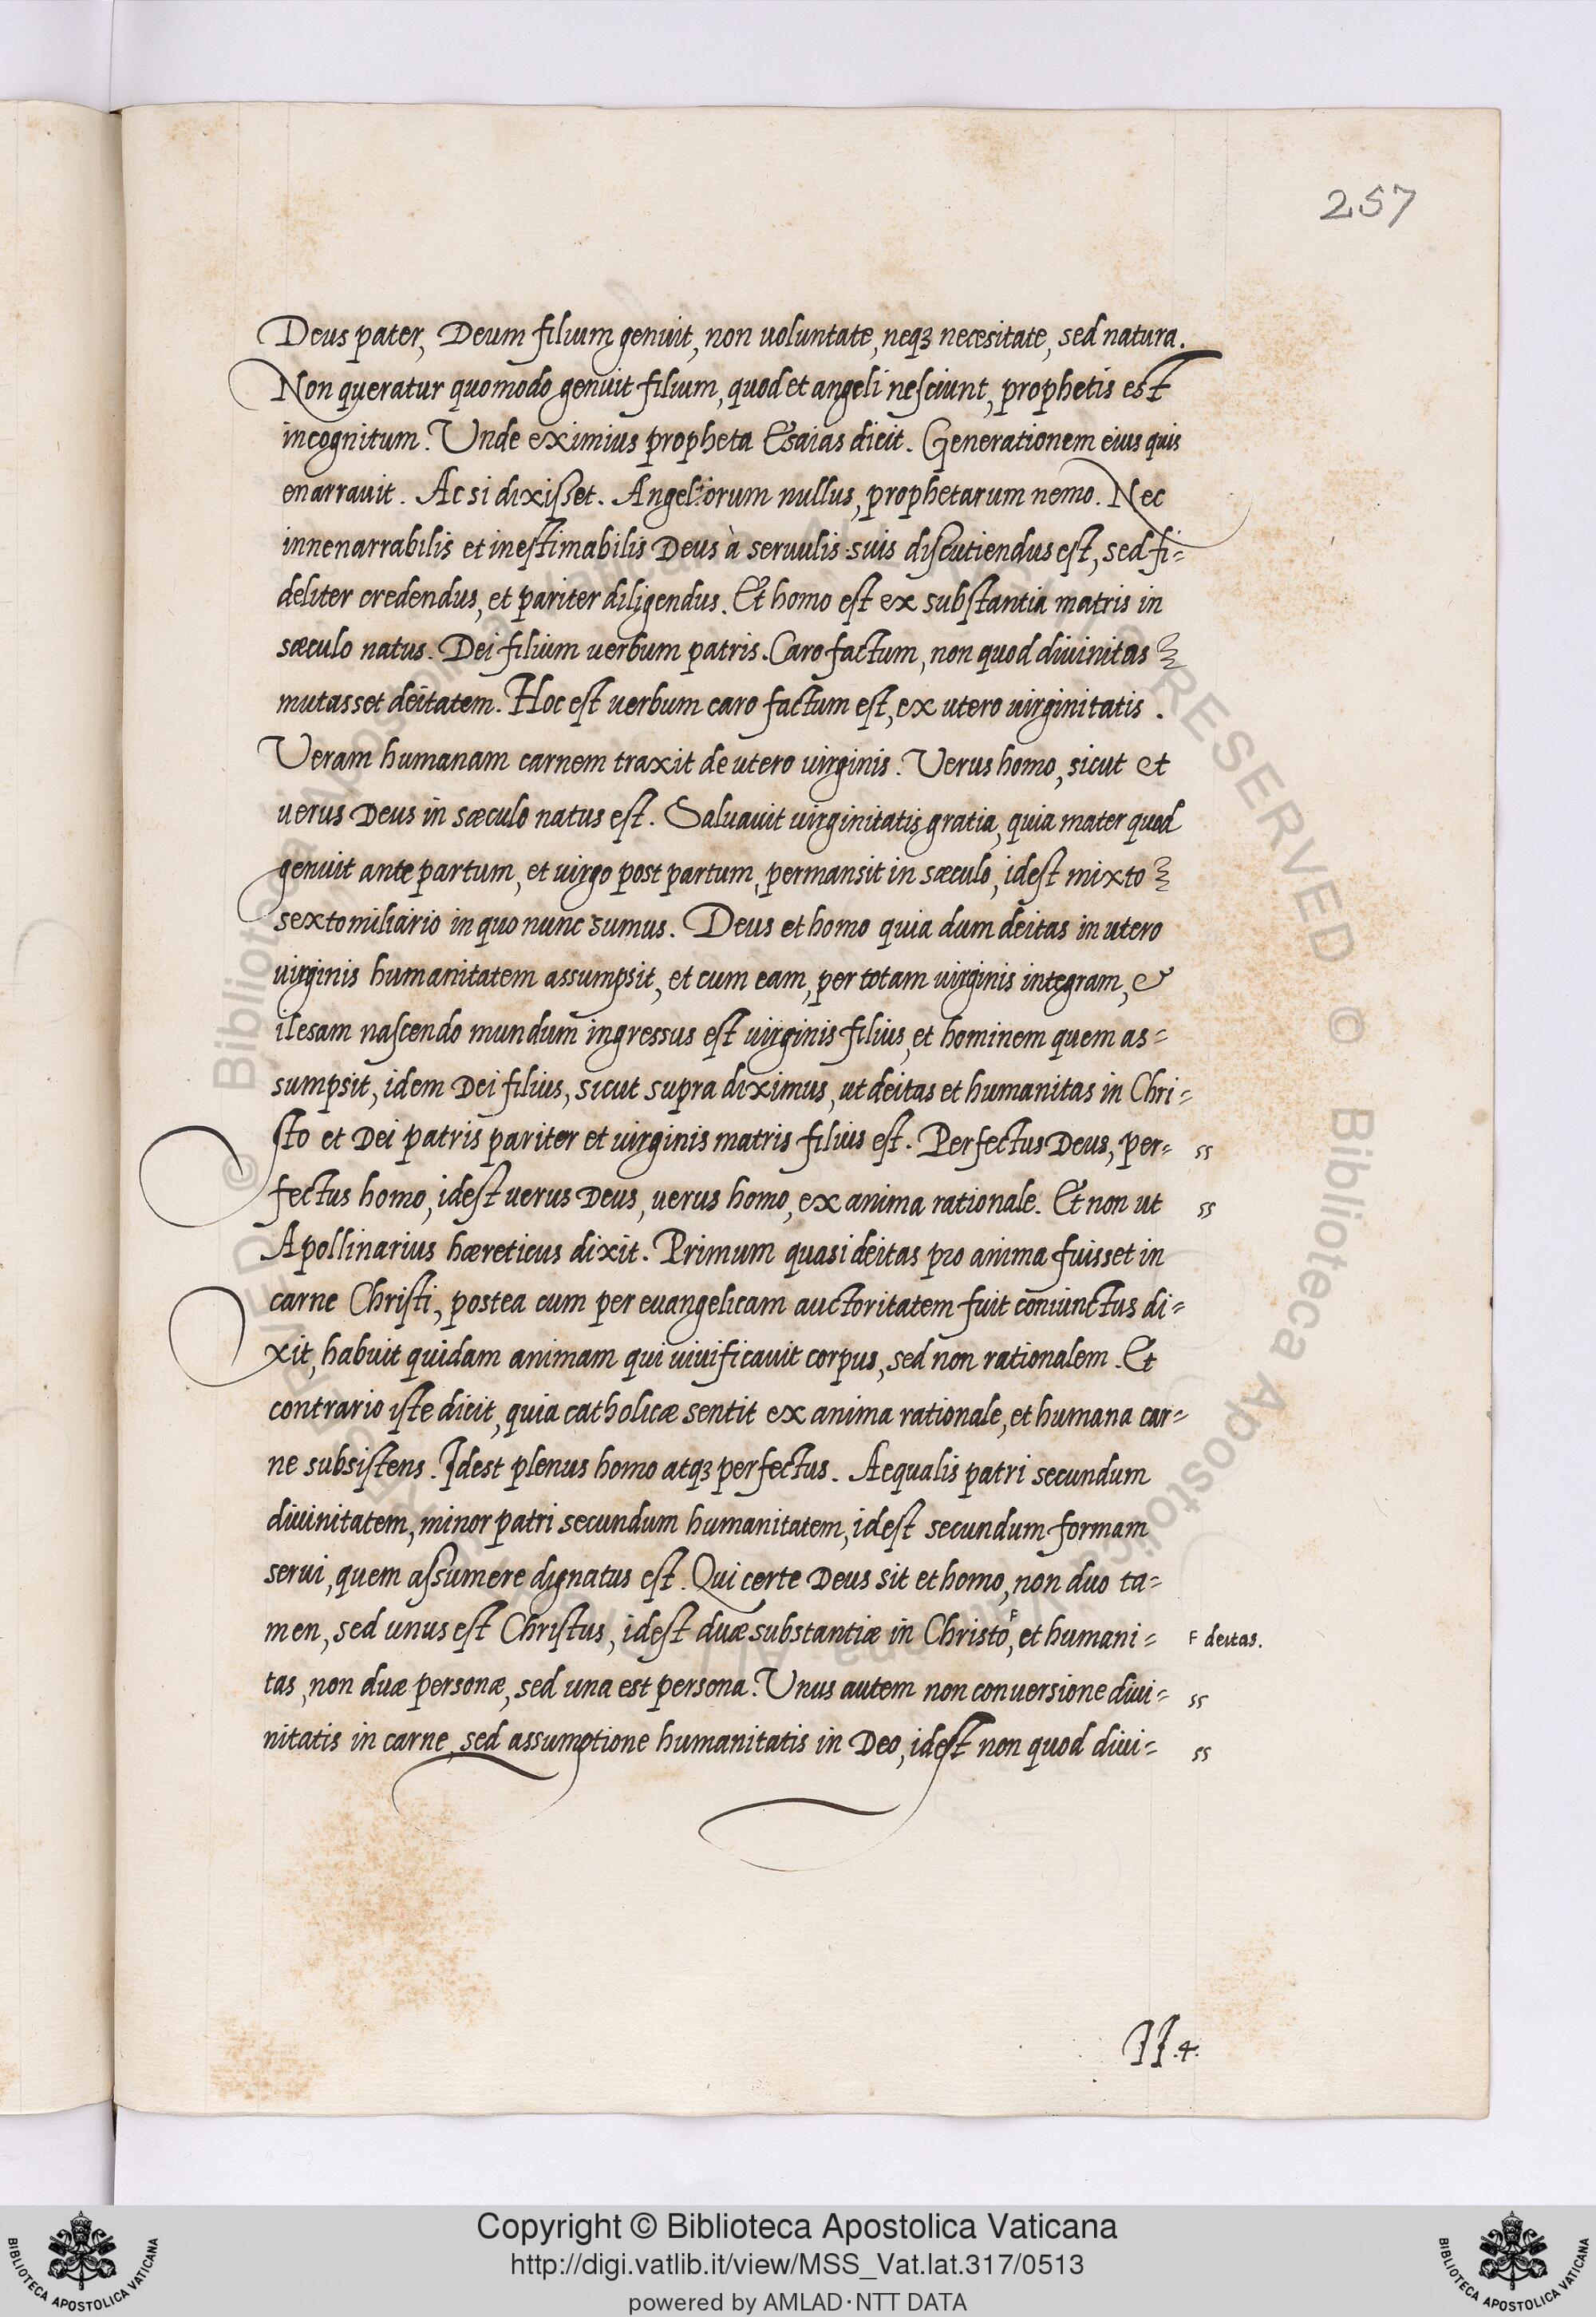 257
Deus pater, Deum filium genuit, non uoluntate, neqꝫ necesitate, sed natura.
Non queratur quomodo genuit filium, quod et angeli nesciunt, prophetis est
incognitum. Unde eximius propheta Esaias dicit. Generationem eius quis
enarrauit. Ac si dixisset. Angelorum nullus, prophetarum nemo. Nec
innenarrabilis et inestimabilis Deus à seruulis suis discutiendus est, sed fi=
deliter credendus, et pariter diligendus. Et homo est ex substantia matris in
sæculo natus. Dei filium uerbum patris. Caro factum, non quod diuinitas
mutasset deitatem. Hoc est uerbum caro factum est, ex utero uirginitatis.
Veram humanam carnem traxit de utero uirginis. Verus homo, sicut et
uerus Deus in sæculo natus est. Saluauit uirginitatis gratia, quia mater quod
genuit ante partum, et uirgo post partum, permansit in sæculo, idest mixto
sextomiliario in quo nunc sumus. Deus et homo quia dum deitas in utero
uirginis humanitatem assumpsit, et cum eam, per totam uirginis integram, &
ilesam nascendo mundum ingressus est uirginis filius, et hominem quem as=
sumpsit, idem Dei filius, sicut supra diximus, ut deitas et humanitas in Chri=
sto et Dei patris pariter et uirginis matris filius est. Perfectus Deus, per= ss
fectus homo, idest uerus Deus, uerus homo, ex anima rationale. Et non ut ss
Apollinarius hæreticus dixit. Primum quasi deitas pro anima fuisset in
carne Christi, postea cum per euangelicam auctoritatem fuit coniunctus di=
xit, habuit quidam animam qui uiuificauit corpus, sed non rationalem. Et
contrario iste dicit, quia catholicæ sentit ex anima rationale, et humana car=
ne subsistens. Idest plenus homo atqꝫ perfectus. Aequalis patri secundum
diuinitatem, minor patri secundum humanitatem, idest secundum formam
serui, quem assumere dignatus est. Qui certe Deus sit et homo, non duo ta=
men, sed unus est Christus, idest duæ substantiæ in Christo, et humani= F deitas.
tas, non duæ personæ, sed una est persona. Unus autem non conuersione diui= ss
nitatis in carne, sed assumptione humanitatis in Deo, idest non quod diui= ss
II.4.
© Biblioteca Apostolica Vaticana
ALL RIGHTS RESERVED
Copyright © Biblioteca Apostolica Vaticana
http://digi.vatlib.it/view/MSS_Vat.lat.317/0513
powered by AMLAD·NTT DATA
BIBLIOTECA APOSTOLICA VATICANA
BIBLIOTECA APOSTOLICA VATICANA